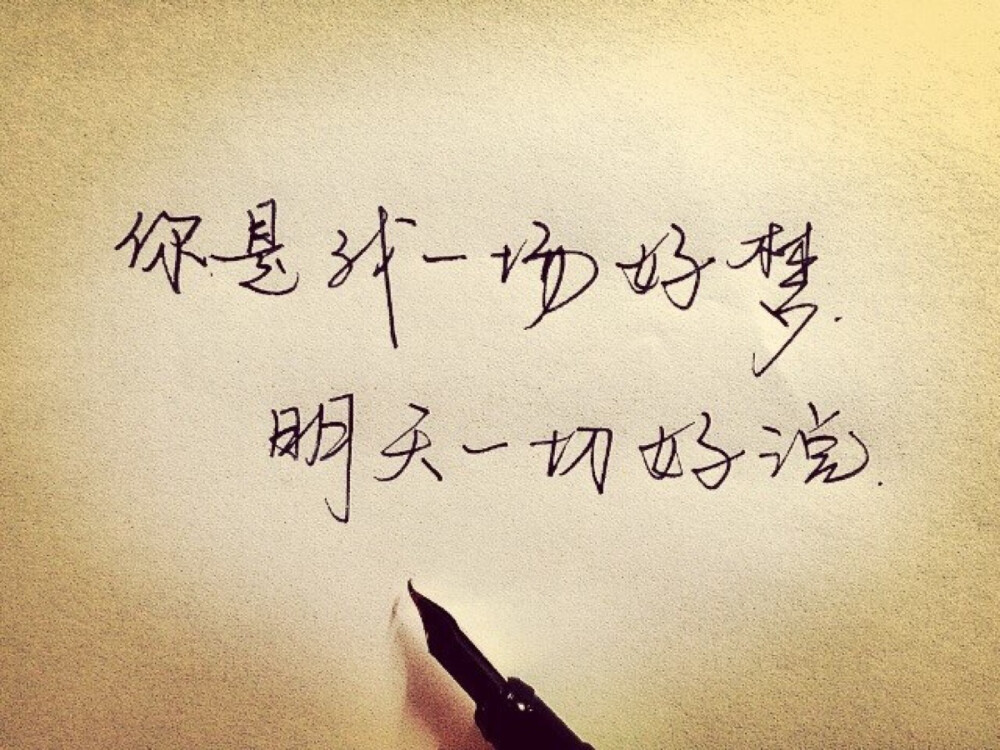 你是我一场好梦.
明天一切好说.